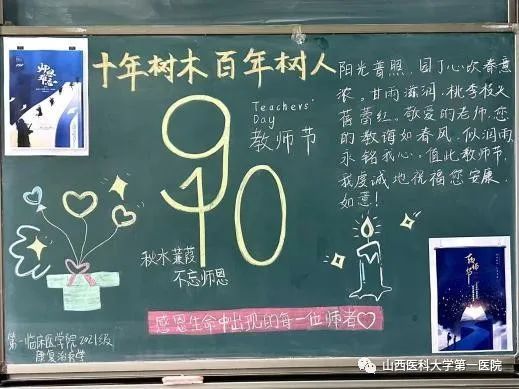 十年树木 百年树人
9
10
Teachers'
Day
教师节
阳光普照，园丁心坎春意
浓。甘雨滋润，桃李枝头
蓓蕾红。敬爱的老师，您
的教诲如春风，似润雨
永铭我心。值此教师节，
我虔诚地祝福您安康，
如意！
秋水蒹葭
不忘师恩
感恩生命中出现的每一位师者
第一临床医学院2021级
康复治疗学
山西医科大学第一医院